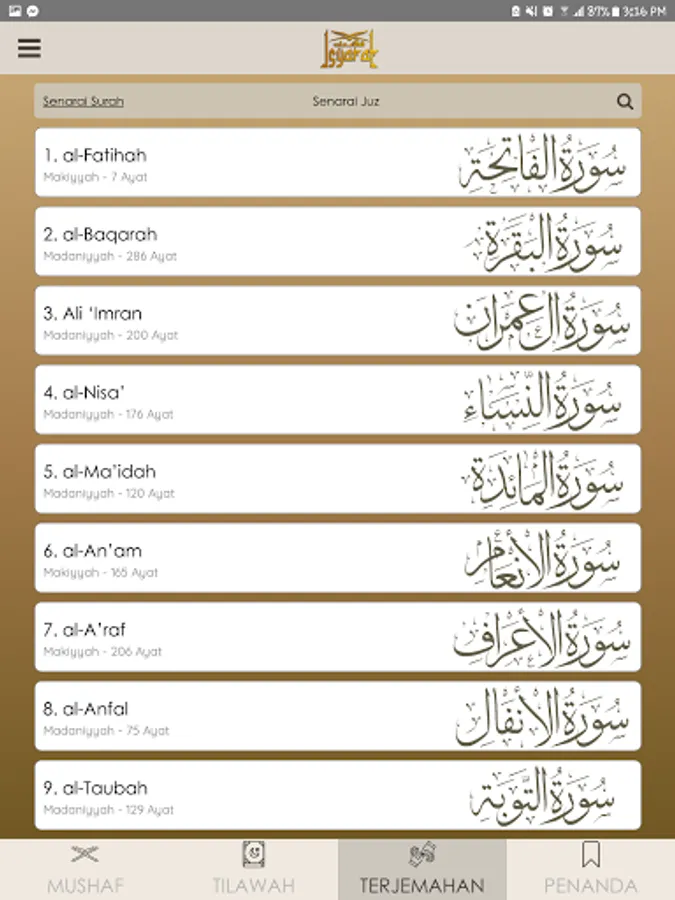 87% 3:16 PM
Isyarat
Senarai Surah Senarai Juz
1. al-Fatihah
Makiyyah - 7 Ayat
سورة الفاتحة
2. al-Baqarah
Madaniyyah - 286 Ayat
سورة البقرة
3. Ali ‘Imran
Madaniyyah - 200 Ayat
سورة آل عمران
4. al-Nisa’
Madaniyyah - 176 Ayat
سورة النساء
5. al-Ma’idah
Madaniyyah - 120 Ayat
سورة المائدة
6. al-An’am
Makiyyah - 165 Ayat
سورة الأنعام
7. al-A’raf
Makiyyah - 206 Ayat
سورة الأعراف
8. al-Anfal
Madaniyyah - 75 Ayat
سورة الأنفال
9. al-Taubah
Madaniyyah - 129 Ayat
سورة التوبة
MUSHAF TILAWAH TERJEMAHAN PENANDA